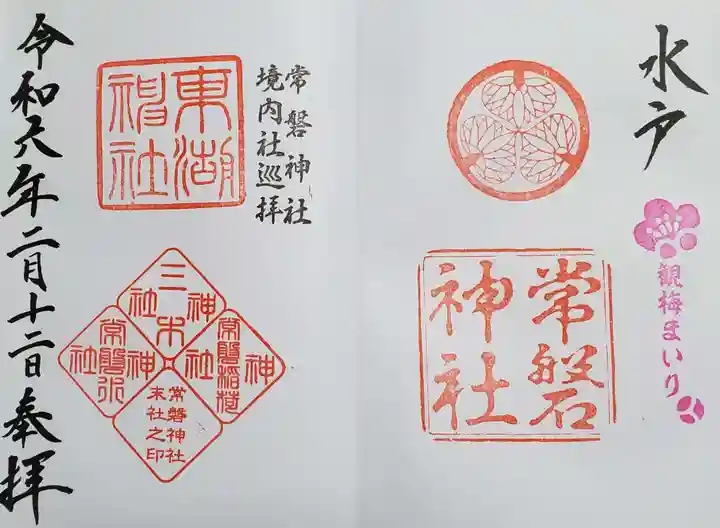 水戸
観梅まいり
常磐神社
常磐神社
境内社巡拝
東湖神社
三木神社
常磐稲荷神社
常磐神社
末社之印
令和六年二月十二日奉拝